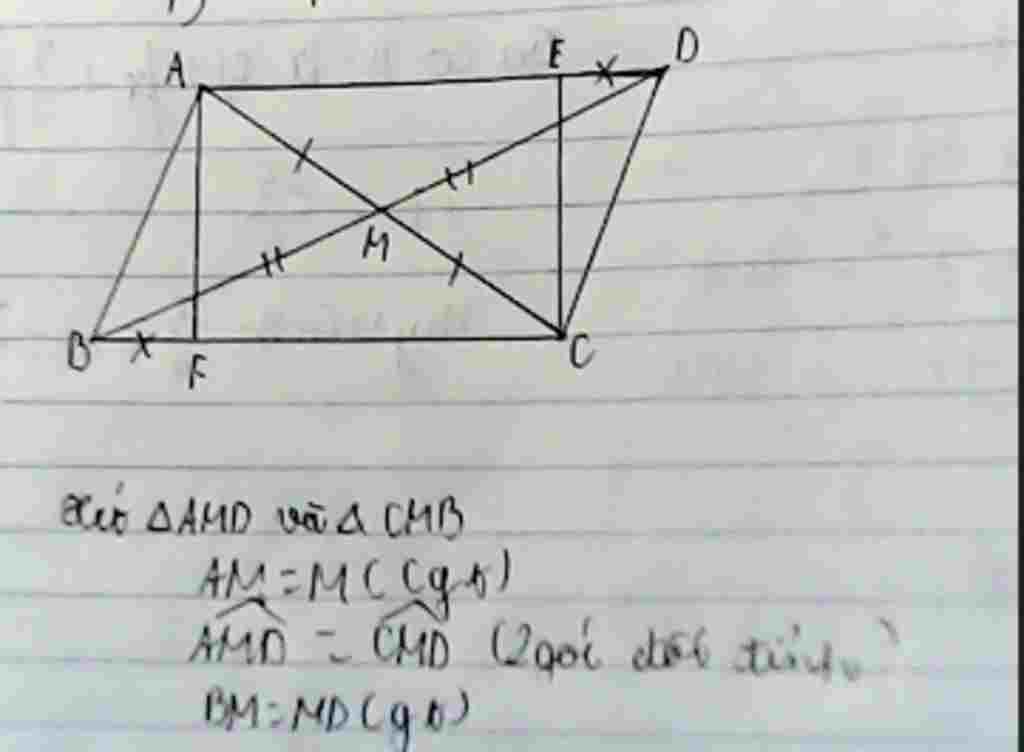 A
E
D
M
B
F
C
Xét ΔAMD và Δ CMB
AM = MC (gt)
AMD = CMD (2 góc đối đỉnh)
BM = MD (gt)